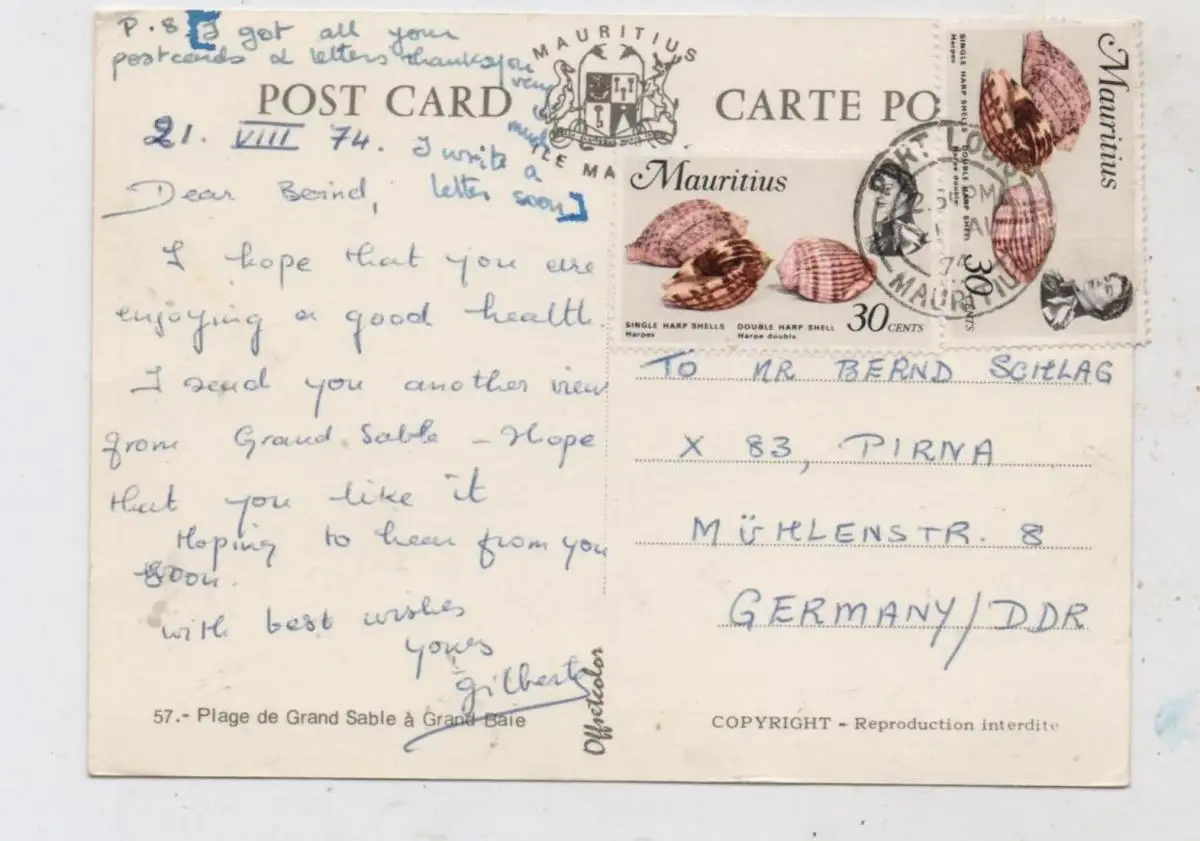 P.S [I got all your
postcards & letters thanks you
very
much
I write a
letter soon]
POST CARD
MAURITIUS
ÎLE MA
CARTE PO
21. VIII 74.
Dear Bernd,
I hope that you are
enjoying a good health.
I send you another view
from Grand Sable - Hope
that you like it
Hoping to hear from you
soon.
with best wishes
yours
Gilbert
57.- Plage de Grand Sable à Grand Baie
Offsetcolor
Mauritius
SINGLE HARP SHELLS
Harpes
DOUBLE HARP SHELL
Harpe double
30 CENTS
Mauritius
SINGLE HARP SHELLS
Harpes
DOUBLE HARP SHELL
Harpe double
30 CENTS
PORT LOUIS
74
MAURITIUS
TO MR BERND SCHLAG
X 83, PIRNA
MÜHLENSTR. 8
GERMANY/DDR
COPYRIGHT - Reproduction interdite